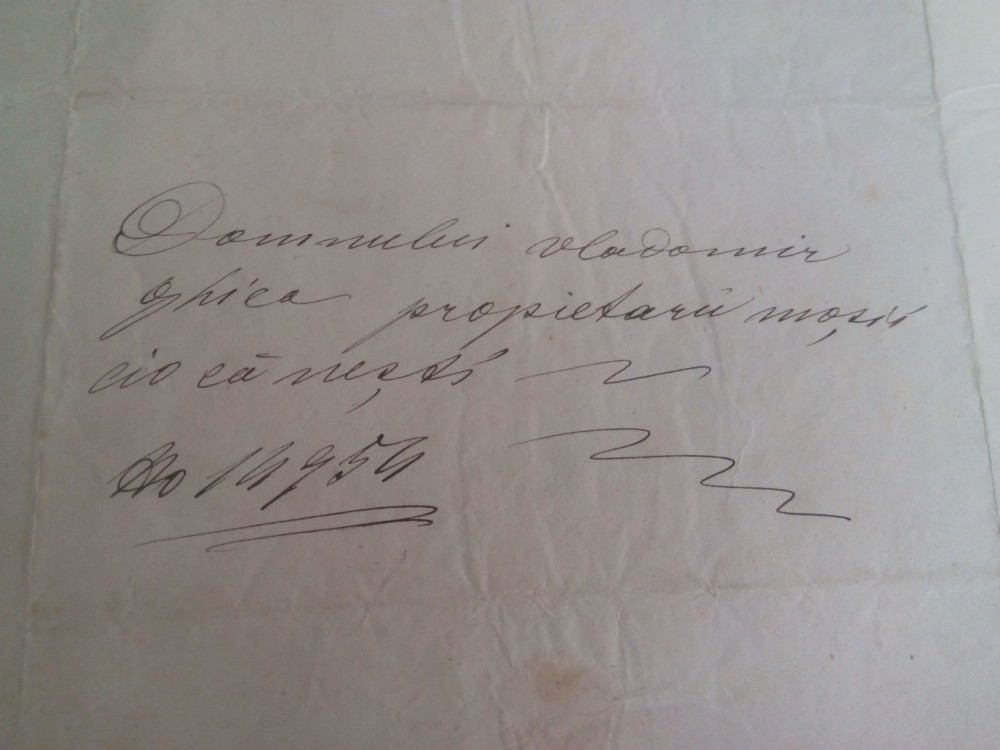 Domnului vladomir
Ghica propietarii moșii
cio că nești
No 14954